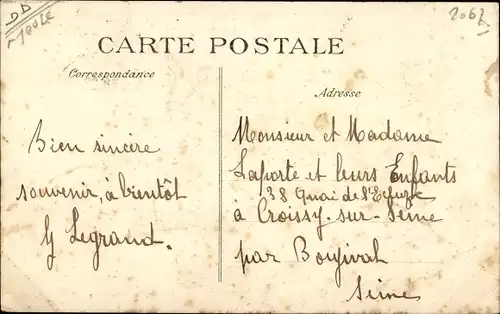 DD
2062
CARTE POSTALE
Correspondance
Adresse
Bien sincère
souvenir, à bientôt
G Legrand.
Monsieur et Madame
Laporte et leurs Enfants
38 Quai de l'Ecluse
à Croissy-sur-Seine
par Bougival
Seine